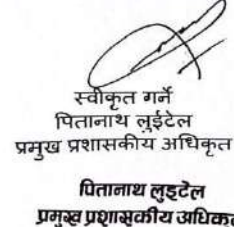 स्वीकृत गर्ने
पितानाथ लुईटेल
प्रमुख प्रशासकीय अधिकृत
पितानाथ लुइटेल
प्रमुख प्रशासकीय अधिकृत